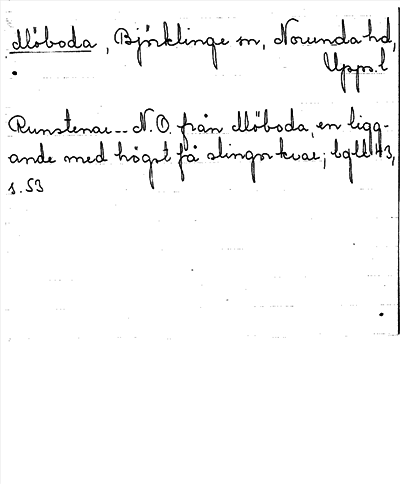 Möboda, Björklinge sn, Norunda hd,
Upps. l
Runstenar -- N.O. från Möboda, en ligg-
ande med högst få slingor kvar;
s. 53